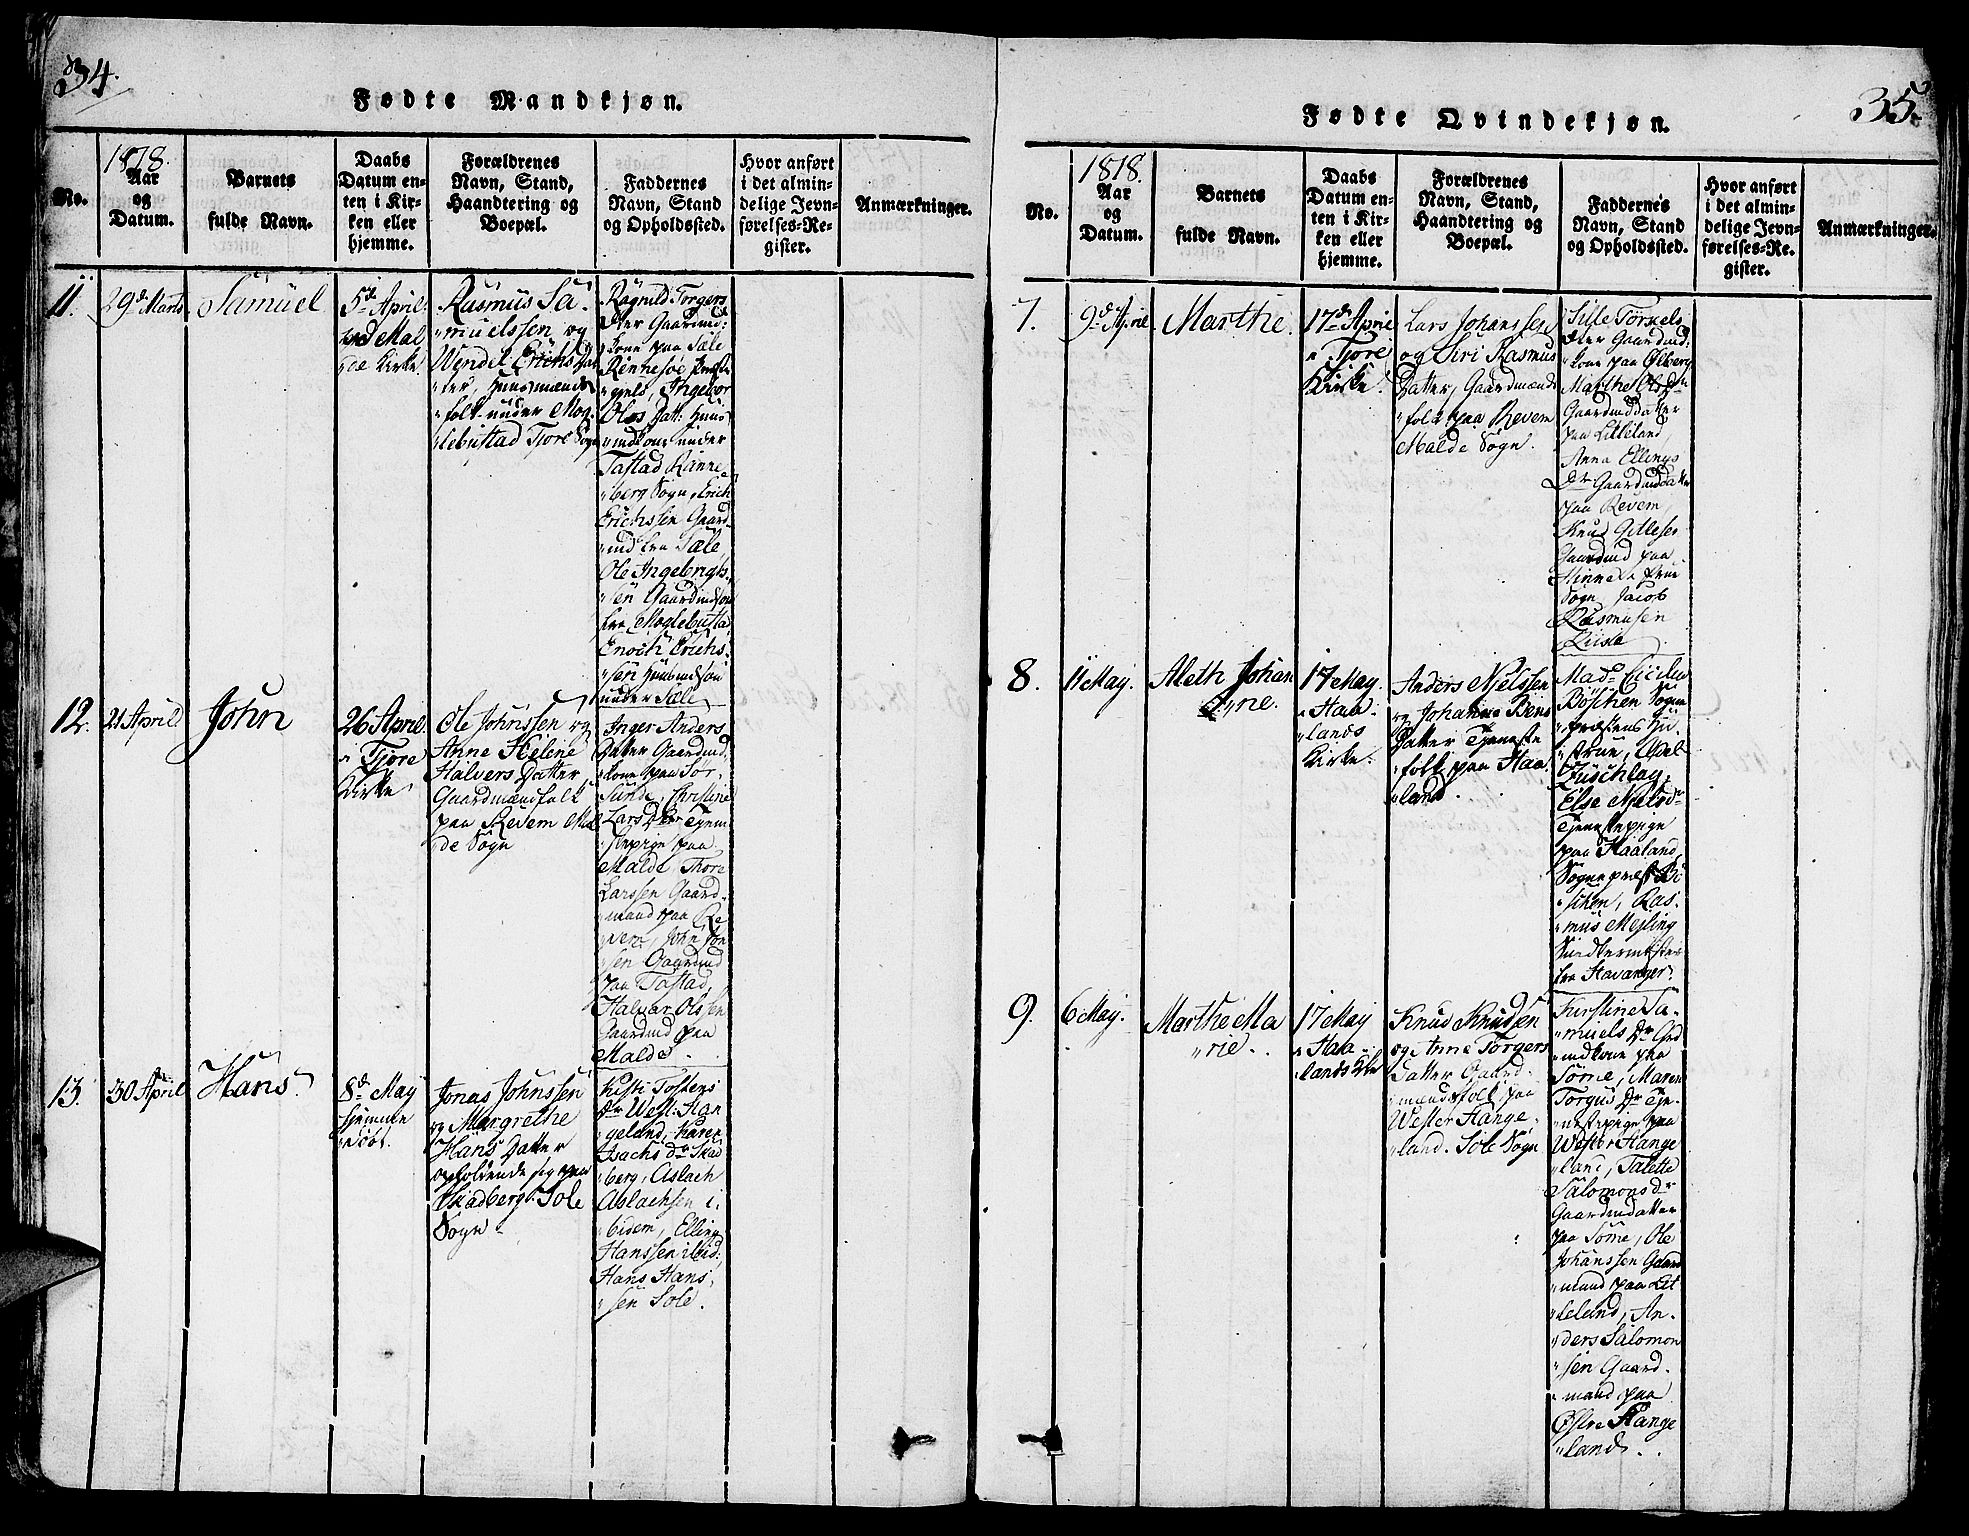 34.
Fødte Mandkjøn.
No.
1818.
Aar
og
Datum.
Barnets
fulde Navn.
Daabs
Datum en-
ten i Kir-
ken eller
hjemme.
Forældrenes
Navn, Stand,
Haandtering og
Boepæl.
Faddernes
Navn, Stand
og Opholdssted.
Hvor anført
i det almin-
delige Jevn-
førelses-Re-
gister.
Anmærkninger.
11.
29de Marts
Samuel
5te April
ved Mal
de Kirke
Rasmus Sa
muelssen og
Wendel Erichs Dat
ter, Huusmænds
folk under Mog
lebustad Tjore Sogn
Ragnild Torgers
Dter Gaardmd:
kone paa Sæle
Rennesøe Præste
gjeld, Ingebor
Oles Datt: Huus
mdkone under
Tastad Ranne
berg Sogn, Erich
Erichssen Gaard
md fra Sæle,
Ole Ingebrigts
sen Gaardmdsøn
fra Moglebusta,
Enoch Erichs
sen Huusmdsøn
under Sæle
12.
21 April
John
26 April.
i Tjore
Kirke
Ole Johnssen og
Anne Helene
Halvers Datter,
Gaardmændfolk
paa Revem Mal
de Sogn
Inger Anders
Datter Gaardmd:
kone paa Sør
Sunde, Christine
Lars Dter Tjene
stepige paa
Malde, Thore
Larssen Gaard
mand paa Re
vem, John Jon
sen Gaardmd
paa Tastad,
Halvar Olssen
Gaardmd paa
Malde.
13.
30 April
Hans
8de May
hjemme
døbt.
Jonas Johnssen
og Margrethe
Hans Datter
opholdende sig paa
Skadberg Sole
Sogn
Kisti Tostens
Dr West: Han
geland, Karen
Isachs dr Skad
berg, Aslach
Aslachsen i
bidem, Elling
Hanssen ibid:
Hans Hans
sen Sole.
35.
Fødte Qvindekjøn.
No.
1818.
Aar
og
Datum.
Barnets
fulde Navn.
Daabs
Datum en-
ten i Kir-
ken eller
hjemme.
Forældrenes
Navn, Stand,
Haandtering og
Boepæl.
Faddernes
Navn, Stand
og Opholdssted.
Hvor anført
i det almin-
delige Jevn-
førelses-Re-
gister.
Anmærkninger.
7.
9de April
Marthe.
17de April
i Tjore
Kirke.
Lars Johanssen
og Siri Rasmus
Datter, Gaardmænds
folk paa Revem
Malde Sogn.
Sille Torkels
Dter Gaardmd:
kone paa Ølberg
Marthe
Gaardmddatter
paa Litleland,
Anna Ellings
Dr Gaardmddatter
paa Revem
Knud Gitlesen
Gaardmd paa
Hinne
Sogn, Jacob
Rasmusen
8.
11 May.
Aleth Johan
ne.
17 May.
i Haa
lands
Kirke.
Anders Njelssen
og Johanne Bens
Datter Tjeneste
folk paa Haa
land.
Mad: Cicilia
Bøschen Sogne
præstens Hu
strue, Axel
Zuschlag,
Else Niels Dr
Tjenestepige
paa Haaland,
Sognepræst Bø
schen, Ras
mus Mejling
fra Stavanger.
9.
6 May.
Marthe Ma
rie.
17 May
i Haa
lands Kke
Knud Knudsen
og Anne Torgers
Datter Gaard
mændsfolk paa
Wester Hange
land. Sole Sogn
Kirstine Sa
muels Dr Grd
mdkone paa
Sørne, Maren
Torgus Dr Tje
nestepige paa
Wester Hange
land, Talette
Salomons dr
Gaardmdatter
paa Sørne, Ole
Johanssen Gaard
mand paa Lit
leland, An
ders Salomon
sen Gaard
mand paa
Østre Hange
land.